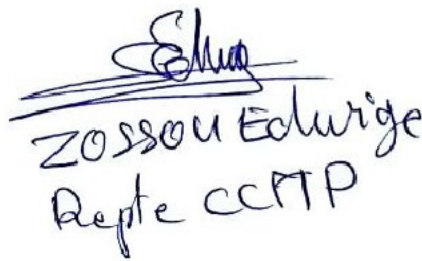 ZOSSOU Edwige
Repte CCMP